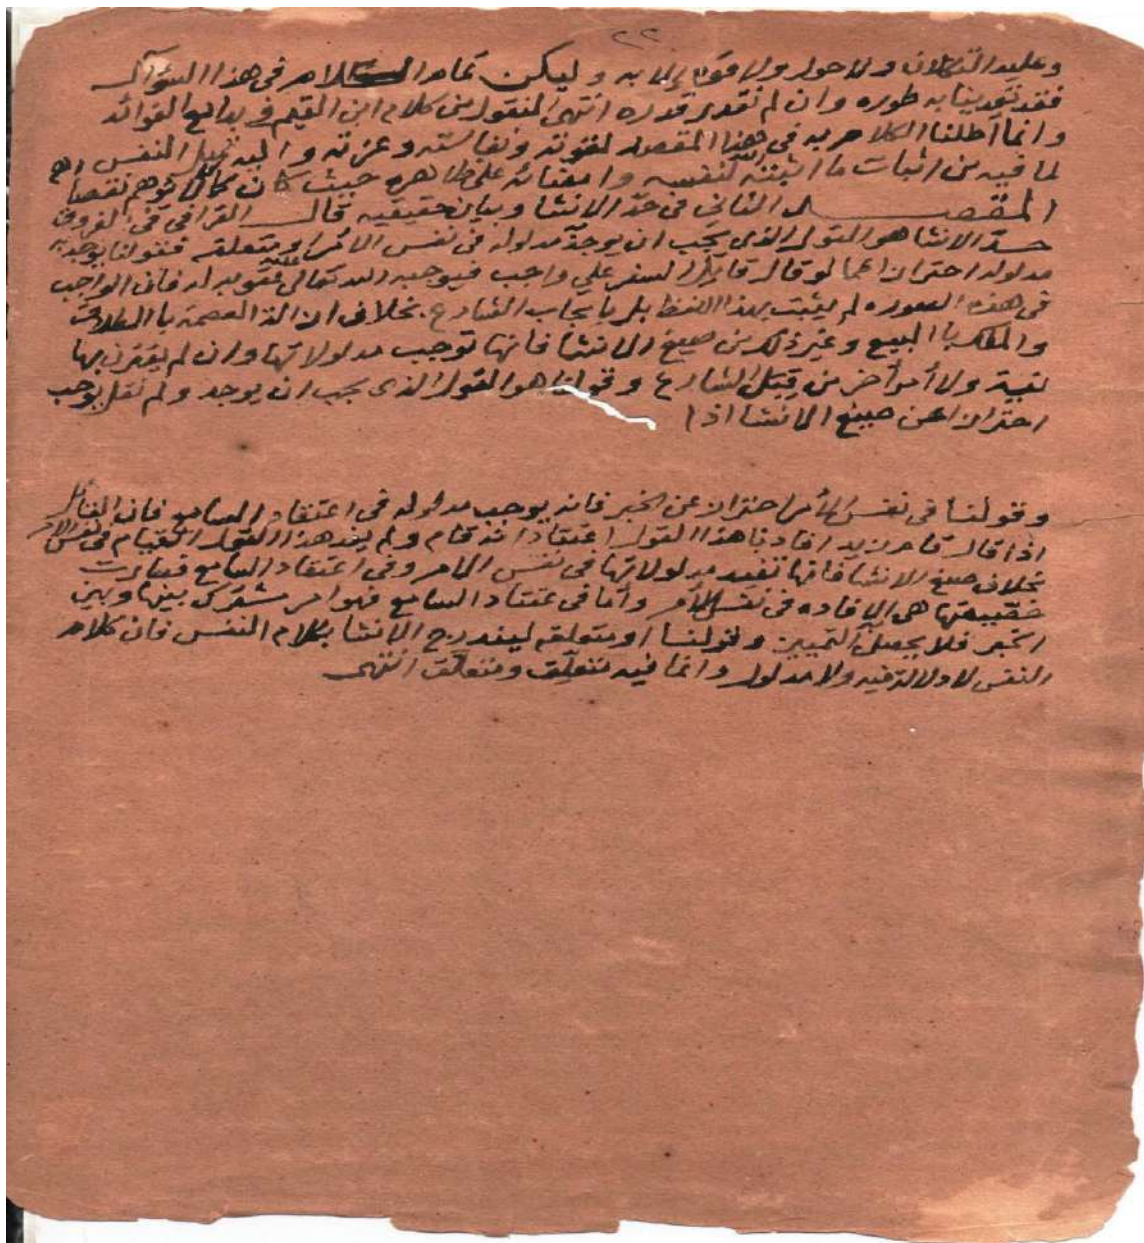 ٢٢
وعليه التكلان ولا حول ولا قوة الا به وليكن تمام الكلام في هذا السؤال
فقد تعدينا به طوره وان لم نقدر قدره انتهى المنقول من كلام ابن القيم في بدايع الفوائد
وانما اطلنا الكلام به في هذا المقصد لقوته ونفاسته وعزته واليه تميل النفس
لما فيه من اثبات ما اثبته الله لنفسه وامضائه على ظاهره حيث كان كمالا توهم نقصا
المقصد الثاني في حد الانشا وبيان حقيقيه قال القرافي في الفروق
حد الانشا هو القول الذي يجب ان يوجد مدلوله في نفس الأمر او متعلقه فقولنا يوجد به
مدلوله احترازا عما لو قال قايل السفر علي واجب فيوجبه الله تعالى عليه عقوبه له فان الواجب
في هذه الصوره لم يثبت بهذا اللفظ بل بايجاب الشارع بخلاف ازالة العصمة با الطلاق
والملك با البيع وغير ذلك من صيغ الانشا فانها توجب مدلولاتها وان لم يقترن بها
نية ولا أمر أخر من قِبَل الشارع وقولنا هو القول الذي يجب ان يوجد ولم نقل يوجب
احترازا عن صيغ الانشا اذا
وقولنا في نفس الأمر احتراز عن الخبر فانه يوجب مدلوله في اعتقاد السامع فان القائل
اذا قال قام زيد افادنا هذا القول اعتقاد انه قام ولم يفد هذا القول القيام في نفس الامر
بخلاف صيغ الانشا فانها تفيد مدلولاتها في نفس الامر وفي اعتقاد السامع فصارت
خصيصتها هي الافاده في نفس الأمر وأما في عتقاد السامع فهو امر مشترك بينها وبين
الخبر فلا يحصل التمييز وقولنا او متعلقه ليندرج الانشا بكلام النفس فان كلام
النفس لا دلالة فيه ولا مدلول وانما فيه متعلِق ومتعلَق انتهى